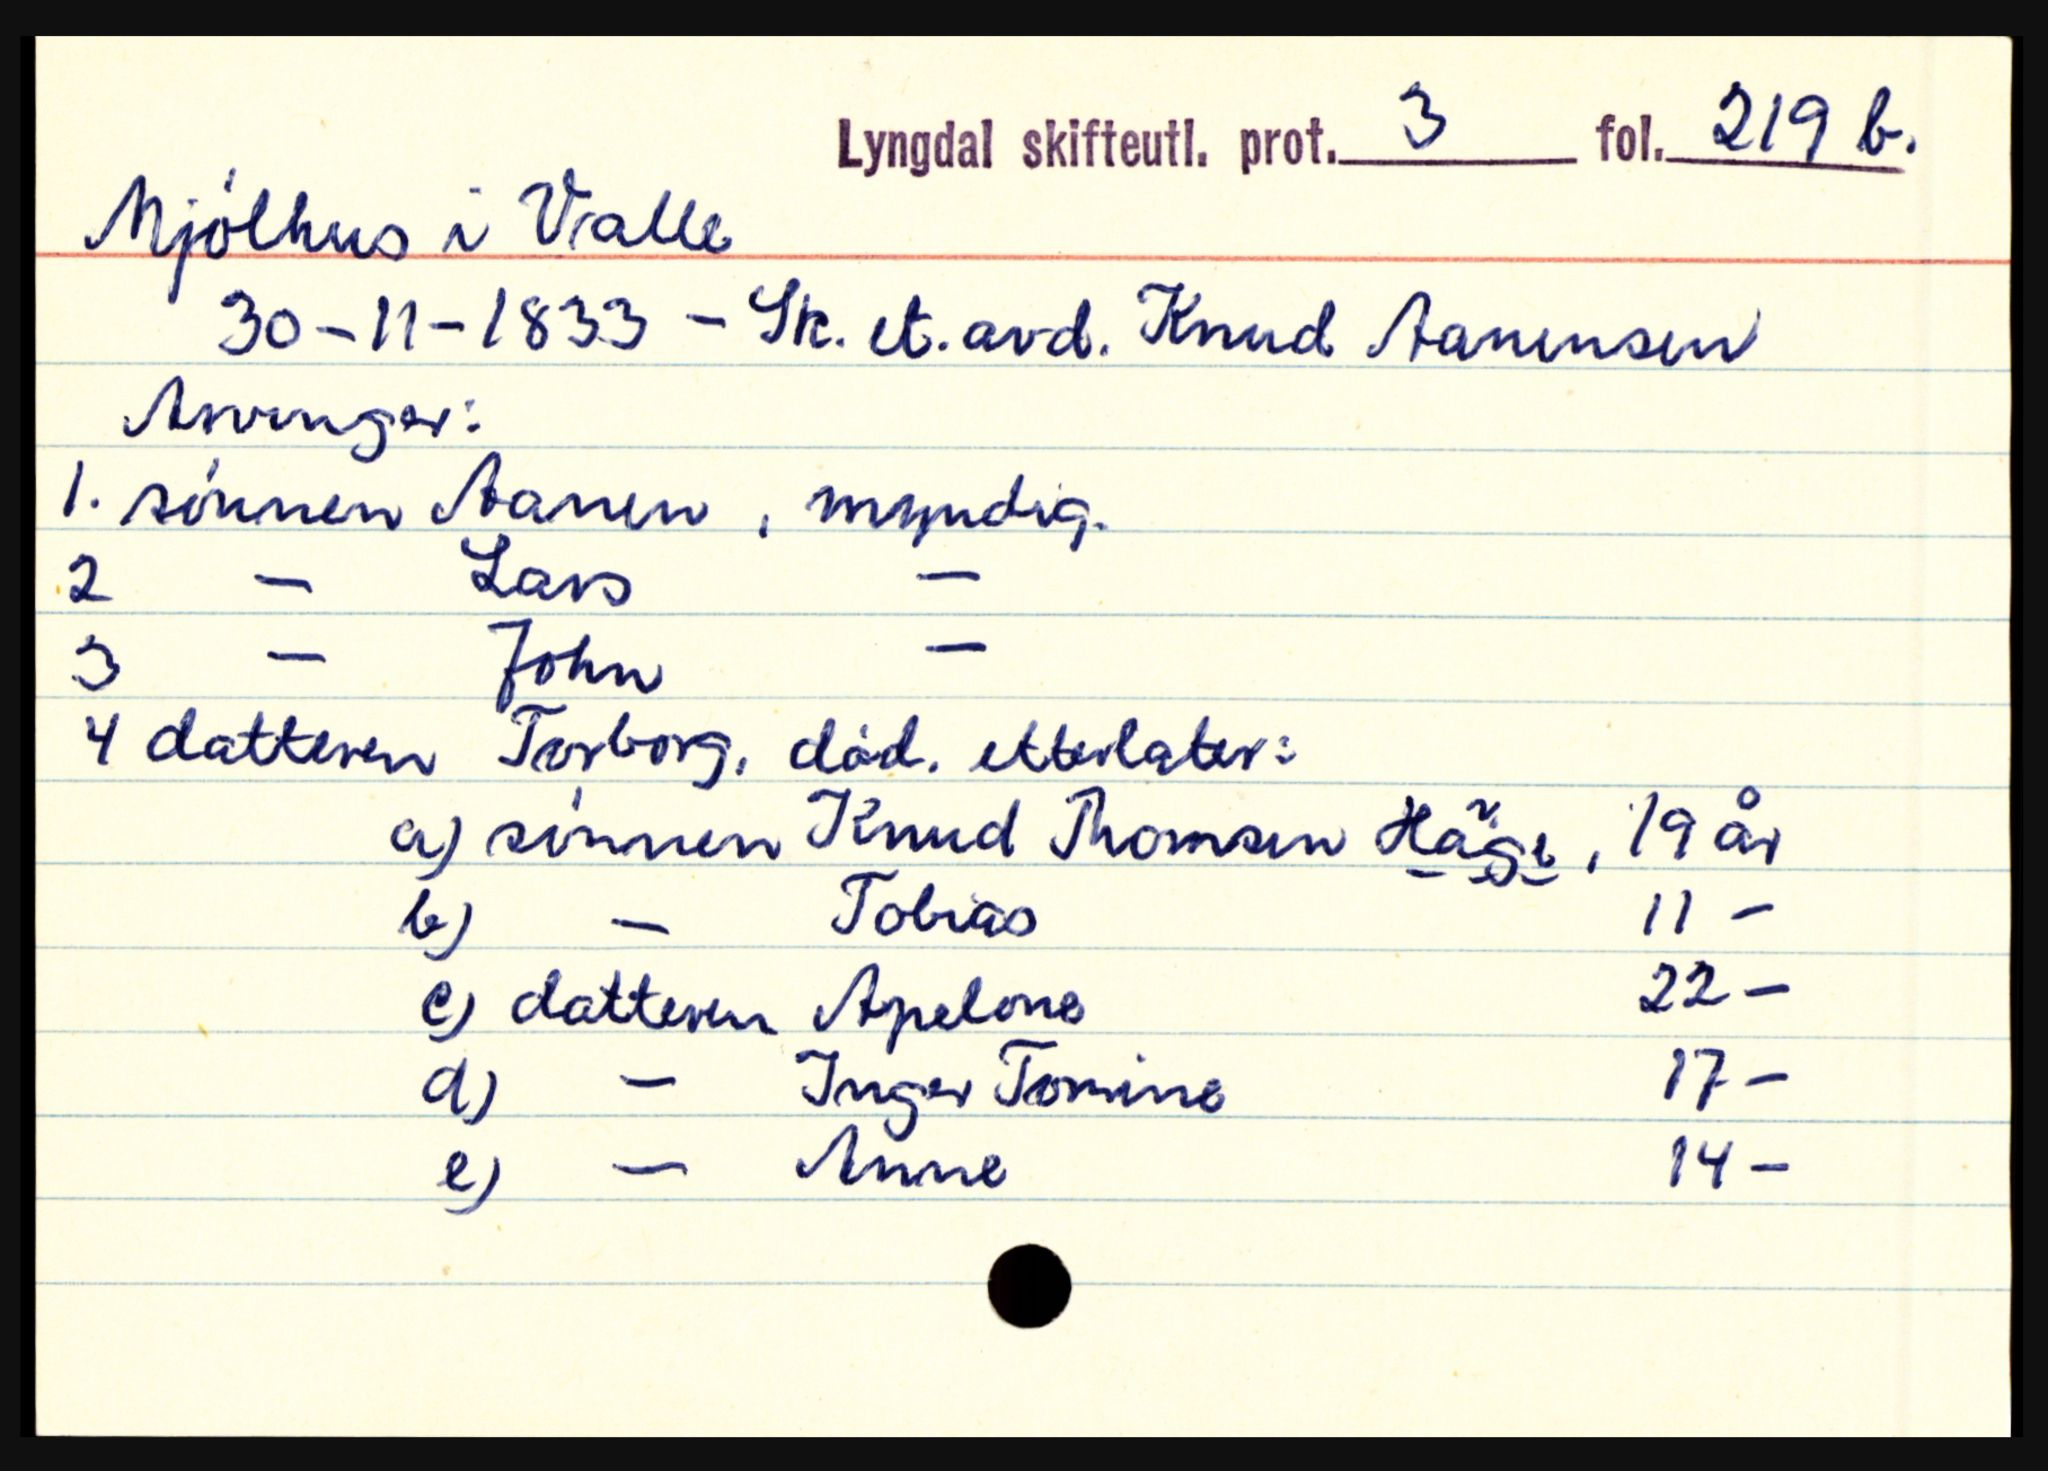 Lyngdal skifteutl. prot. 3 fol. 219 b.
Mjólhus i Valle
30-11-1833 - Sk. et. avd. Knud Aanensen
Arvinger:
1. sónnen Aanen, myndig.
2 — Lars —
3 — John —
4 datteren Torborg, död. etterlater:
a) sónnen Knud Thomsen, 19 år
b) — Tobias 11 -
c) datteren Apelone 22 -
d) — Inger Tomine 17 -
e) — Anne 14 -